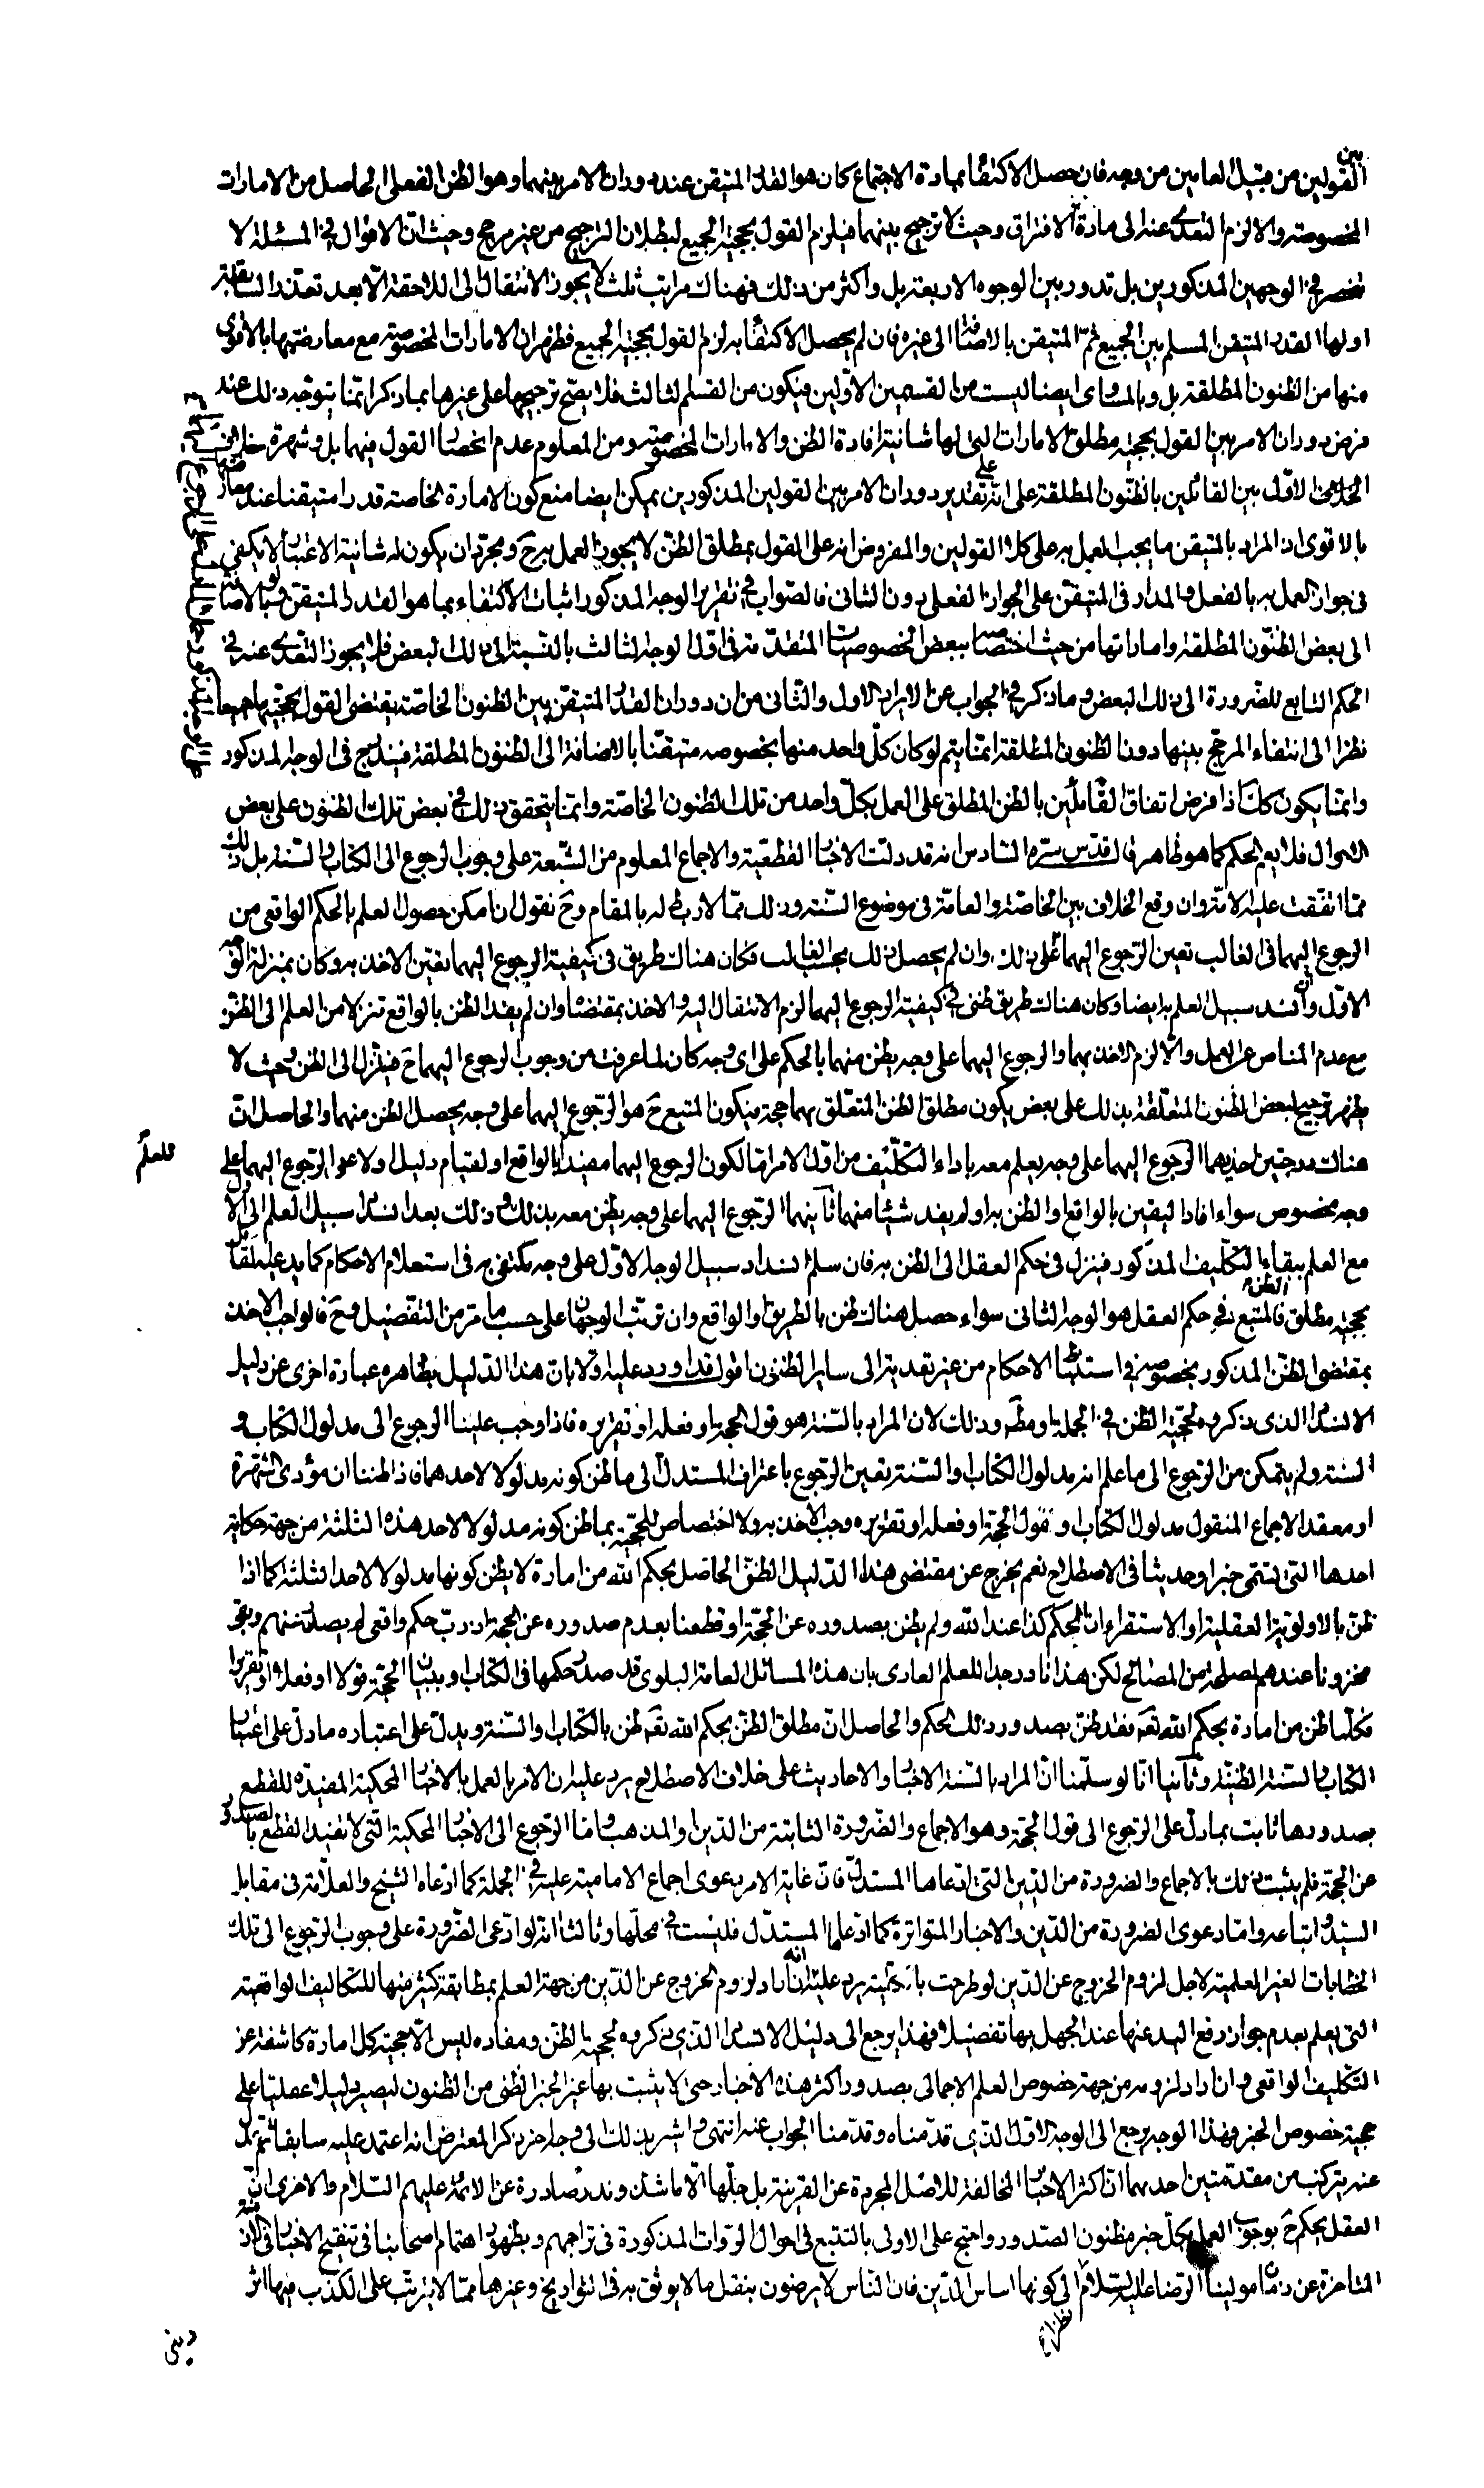 بين
القولين من قبيل العامين من وجه فان حصل الاكتفاء بمادة الاجتماع كان هو القدر المتيقن عند دوران الامر بينهما وهو الظن الفعلى الحاصل من الامارات
المخصوصة والا لزم التعدى عنه الى مادة الافتراق وحيث لا ترجيح بينهما فيلزم القول بحجية الجميع لبطلان الترجيح من غير مرجح وحيث ان الاقوال فى المسئلة لا
تنحصر فى الوجهين المذكورين بل تدور بين الوجوه الاربعة بل واكثر من ذلك فهناك مراتب ثلث لا يجوز الانتقال الى اللاحقة الا بعد تعذر السابقة
اولها القدر المتيقن المسلم بين الجميع ثم المتيقن بالاضافة الى غيره فان لم يحصل الاكتفاء به لزم القول بحجية الجميع فظهر ان الامارات المخصوصة مع معارضتها بالاقوى
منها من الظنون المطلقة بل وبالمساوى ايضا ليست من القسمين الاولين فيكون من القسم الثالث فلا يصح ترجيحها على غيرها بما ذكر انما يتوجه ذلك عند
فرض دوران الامر بين القول بحجية مطلق الامارات التى لها شانية افادة الظن والامارات المخصوصة ومن المعلوم عدم انحصار القول فيهما بل وشهرة خلافه
الخلاف الاول بين القائلين بالظنون المطلقة على انه على تقدير دوران الامر بين القولين المذكورين يمكن ايضا منع كون الامارة الخاصة قدرا متيقنا عند معارضتها
بالاقوى اذ المراد بالمتيقن ما يجب العمل به على كلا القولين والمفروض انه على القول بمطلق الظن لا يجوز العمل به ح ومجرد ان يكون له شانية الاعتبار لا يكفى
فى جواز العمل به بالفعل والمدار فى المتيقن على الجواز الفعلى دون الشانى فالصواب فى تقرير الوجه المذكور اثبات الاكتفاء بما هو القدر المتيقن ولو بالاضافة
الى بعض الظنون المطلقة واماراتها من حيث اختصاصها ببعض الخصوصيات المتقدمة فى اول الوجه الثالث بالنسبة الى ذلك البعض فلا يجوز التعدى عنه فى
الحكم التابع للضرورة الى ذلك البعض وما ذكر فى الجواب عن الايراد الاول والثانى من ان دوران القدر المتيقن بين الظنون الخاصة يقتضى القول بحجيتها جميعا
نظرا الى انتفاء المرجح بينها دون الظنون المطلقة انما يتم لو كان كل واحد منها بخصوصه متيقنا بالاضافة الى الظنون المطلقة فيندرج فى الوجه المذكور
وانما يكون كك اذا فرض اتفاق القائلين بالظن المطلق على العمل بكل واحد من تلك الظنون الخاصة وانما يتحقق ذلك فى بعض تلك الظنون على بعض
الاحوال فلا يعم الحكم كما هو ظاهر قال قدس سره السادس انه قد دلت الاخبار القطعية والاجماع المعلوم من الشيعة على وجوب الرجوع الى الكتاب والسنة بل ذلك
مما اتفقت عليه الامة وان وقع الخلاف بين الخاصة والعامة فى موضوع السنة وذلك مما لا ربط له بالمقام وح نقول ان امكن حصول العلم بالحكم الواقعى من
الرجوع اليهما فى الغالب تعين الرجوع اليهما على ذلك وان لم يحصل ذلك بحسب الغالب فكان هناك طريق فى كيفية الرجوع اليهما تعين الاخذ به وكان بمنزلة الوجه
الاول وان انسد سبيل العلم به ايضا وكان هناك طريق ظنى فى كيفية الرجوع اليهما لزم الانتقال اليه والاخذ بمقتضاه وان لم يفد الظن بالواقع تنزلا من العلم الى الظن
مع عدم المناص عن العمل والا لزم الاخذ بهما والرجوع اليهما على وجه يظن منهما بالحكم على اى وجه كان لما عرفت من وجوب الرجوع اليهما ح فينزل الى الظن وحيث لا
يظهر ترجيح لبعض الظنون المتعلقة بذلك على بعض يكون مطلق الظن المتعلق بهما حجة فيكون المتبع ح هو الرجوع اليهما على وجه يحصل الظن منهما والحاصل ان
هناك درجتين احديهما الرجوع اليهما على وجه يعلم معه باداء التكليف من اول الامر اما لكون الرجوع اليهما مفيدا للعلم بالواقع او لقيام دليل ولا على الرجوع اليهما على
وجه مخصوص سواء افاد اليقين بالواقع او الظن به او لم يفد شيئا منهما ثانيهما الرجوع اليهما على وجه يظن معه بذلك وذلك بعد انسداد سبيل العلم الى الاول
مع العلم ببقاء التكليف المذكور فينزل فى حكم العقل الى الظن به فان سلم انسداد سبيل الوجه الاول على وجه مكتفى به فى استعلام الاحكام كما يدعيه القائل
بحجية مطلق الظن فالمتبع فى حكم العقل هو الوجه الثانى سواء حصل هناك ظن بالطريق او الواقع وان ترتب الوجهان على حسب ما مر من التفصيل وح فالواجب الاخذ
بمقتضى الظن المذكور بخصوصه فى استنباط الاحكام من غير تعدية الى ساير الظنون اقول قد اورد عليه اولا بان هذا الدليل بظاهره عبارة اخرى عن دليل
الانسداد الذى ذكروه لحجية الظن فى الجملة او مطلقا وذلك لان المراد بالسنة هو قول الحجة او فعله او تقريره فاذا وجب علينا الرجوع الى مدلول الكتاب و
السنة ولم يتمكن من الرجوع الى ما علم انه مدلول الكتاب او السنة تعين الرجوع باعتراف المستدل الى ما ظن كونه مدلولا لاحدهما فاذا ظننا ان مؤدى الشهرة
او معقد الاجماع المنقول مدلول الكتاب او لقول الحجة او فعله او تقريره وجب الاخذ به ولا اختصاص للحجية بما ظن كونه مدلولا لاحد هذه الثلثة من جهة حكاية
احدها التى تسمى خبرا وحديثا فى الاصطلاح نعم يخرج عن مقتضى هذا الدليل الظن الحاصل بحكم الله من امارة لا يظن كونها مدلولا لاحد الثلثة كما اذا
ظن بالاولوية العقلية او الاستقراء ان الحكم كذا عند الله ولم يظن بصدوره عن الحجة او قطعنا بعدم صدوره عن الحجة اذ رب حكم واقعى لم يصدر عنهم وبقى
مخزونا عندهم لمصلحة من المصالح لكن هذا نادر جدا للعلم العادى بان هذه المسائل العامة البلوى قد صدر حكمها فى الكتاب او ببيان الحجة قولا او فعلا او تقريرا
فكلما ظن من امارة بحكم الله تعالى فقد ظن بصدور ذلك الحكم والحاصل ان مطلق الظن بحكم الله تعالى ظن بالكتاب او السنة ويدل على اعتباره ما دل على اعتبار
الكتاب والسنة الظنية وثانيا انا لو سلمنا ان المراد بالسنة الاخبار والاحاديث على خلاف الاصطلاح يرد عليه ان الامر بالعمل بالاخبار المحكية المفيدة للقطع
بصدورها ثابت بما دل على الرجوع الى قول الحجة وهو الاجماع والضرورة الثابتة من الدين او المذهب واما الرجوع الى الاخبار المحكية التى لا تفيد القطع بالصدور
عن الحجة فلم يثبت ذلك بالاجماع والضرورة من الدين التى ادعاها المستدل فان غاية الامر دعوى اجماع الامامية عليه فى الجملة كما ادعاه الشيخ والعلامة فى مقابل
السيد واتباعه واما دعوى الضرورة من الدين والاخبار المتواترة كما ادعاها المستدل فليست فى محلها وثالثا انه لو ادعى الضرورة على وجوب الرجوع الى تلك
الحكايات الغير العلمية لاجل لزوم الخروج عن الدين لو طرحت بالكلية يرد عليه انه ان اراد لزوم الخروج عن الدين من جهة العلم بمطابقة كثير منها للتكاليف الواقعية
التى يعلم بعدم جواز رفع اليد عنها عند الجهل بها تفصيلا فهذا يرجع الى دليل الانسداد الذى ذكروه لحجية الظن ومفاده ليس الا حجية كل امارة كاشفة عن
التكليف الواقعى وان اراد لزومه من جهة خصوص العلم الاجمالى بصدور اكثر هذه الاخبار حتى لا يثبت بها غير الخبر الظنى من الظنون ليصير دليلا عقليا على
حجية خصوص الخبر فهذا الوجه يرجع الى الوجه الاول الذى قدمناه وقدمنا الجواب عنه انتهى واشير بذلك الى وجه اخر ذكر المعترض انه اعتمد عليه سابقا ثم عدل
عنه يتركب من مقدمتين احدهما ان اكثر الاخبار المخالفة للاصل المجردة عن القرينة بل جلها الا ما شذ وندر صادرة عن الائمة عليهم السلام والاخرى ان
العقل يحكم ح بوجوب العمل بكل خبر مظنون الصدور واحتج على الاولى بالتتبع فى احوال الروات المذكورة فى تراجمهم وبظهور اهتمام اصحابنا فى تنقيح الاخبار فى الازمنة
المتاخرة عن زمان مولينا الرضا عليه السلام الى كونها اساس الدين فان الناس لا يرضون بنقل ما لا يوثق به فى التواريخ وغيرها مما لا يترتب على الكذب فيها اثر
دينى